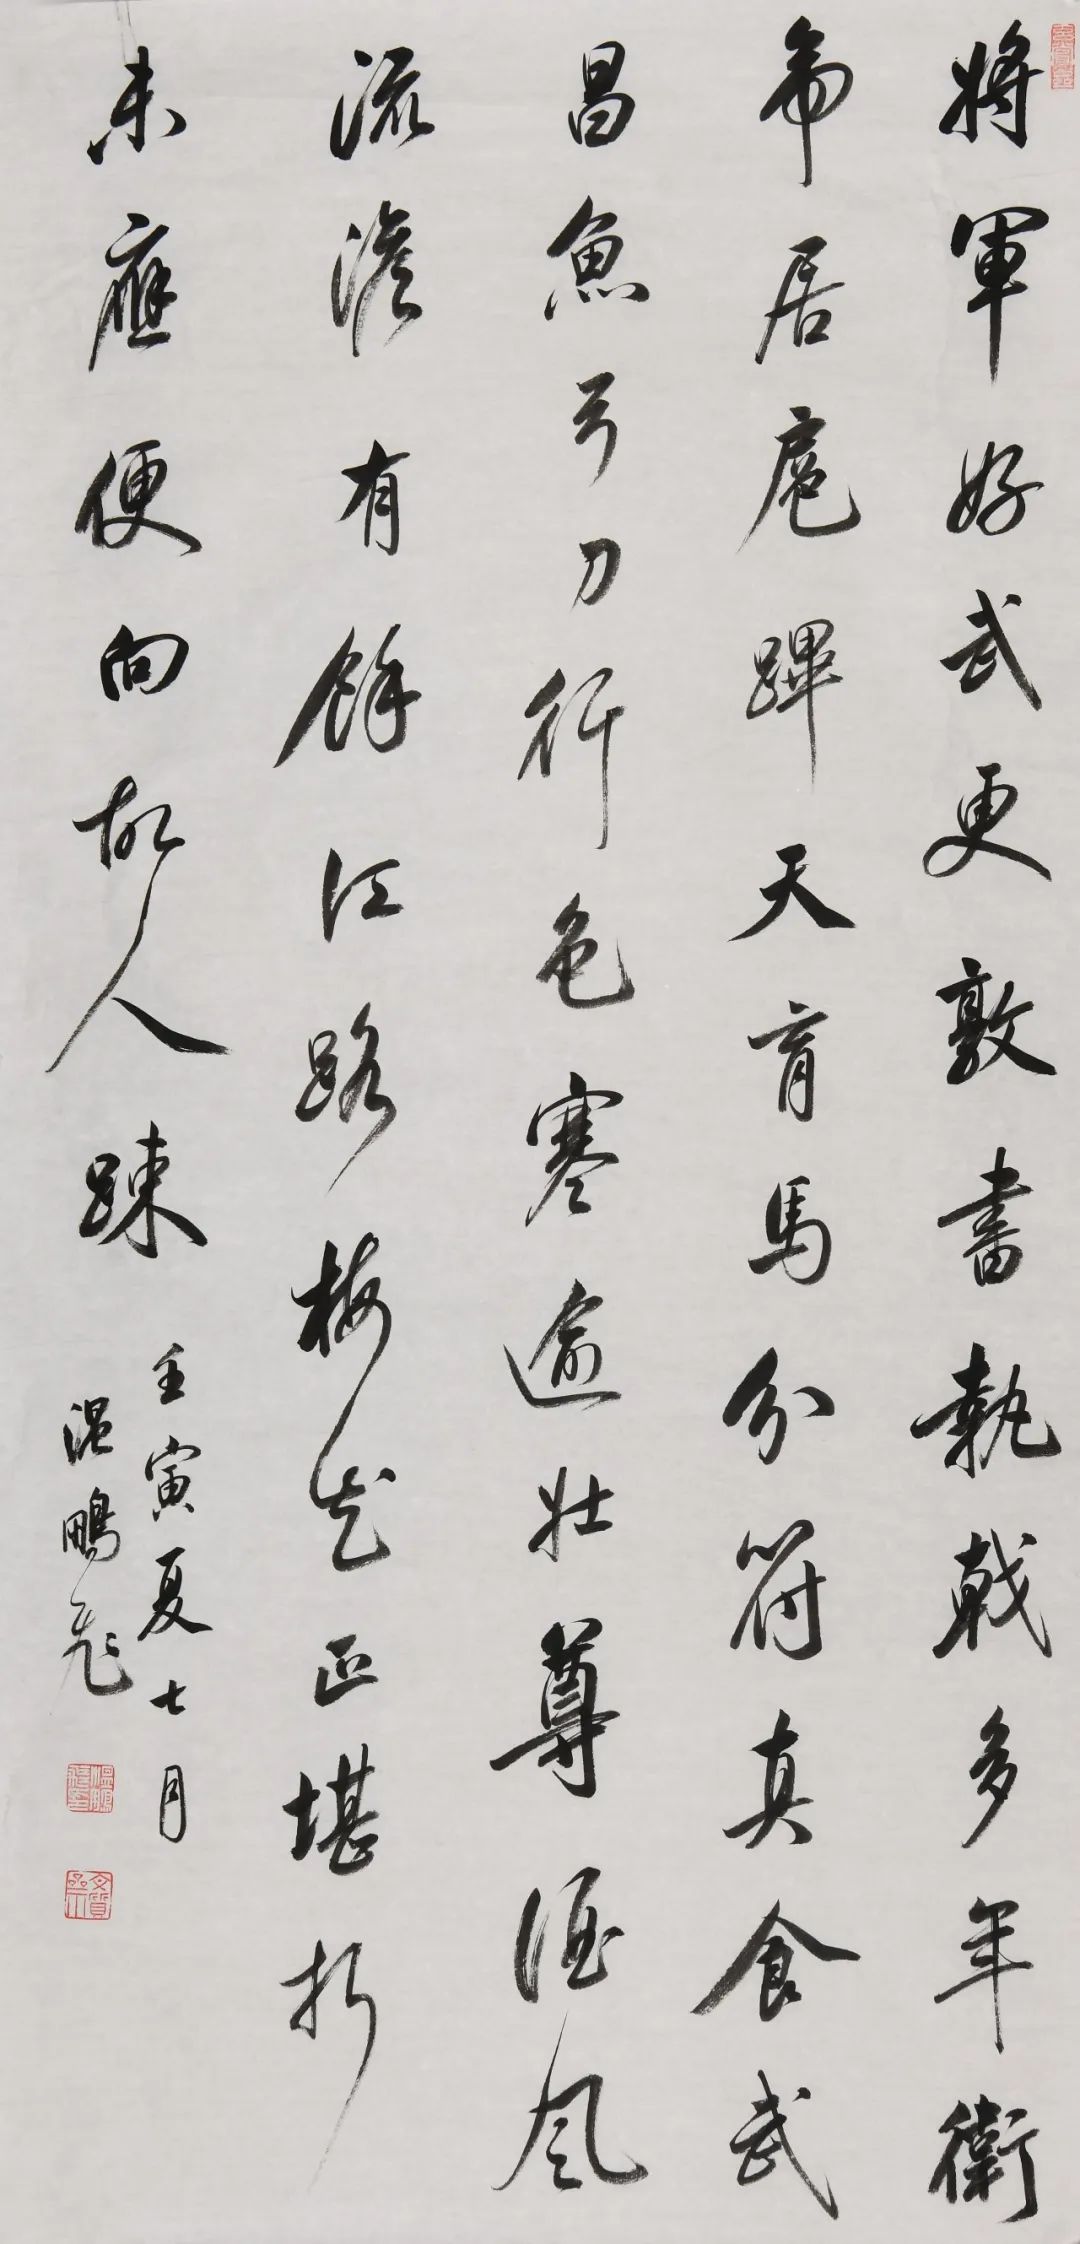 將軍好武更敦書執戟多年衛
帝居扈蹕天育馬分符真食武
昌魚弓刀行色寒逾壯尊酒風
流澹有餘江路梅花正堪折
未應便向故人疎
壬寅夏七月
溫鵬飛